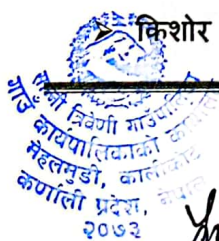 ➤ किशोर
त्रिवेणी गाउँपालिका
गाउँ कार्यपालिकाको
मेहलमुडी, कालीकोट
कर्णाली प्रदेश, नेपाल
२०७३